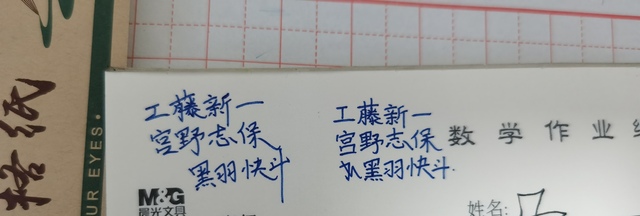 格纸
UR EYES.
工藤新一
宫野志保
黑羽快斗
工藤新一
宫野志保
黑羽快斗.
数学作业
M&G
晨光文具
姓名: